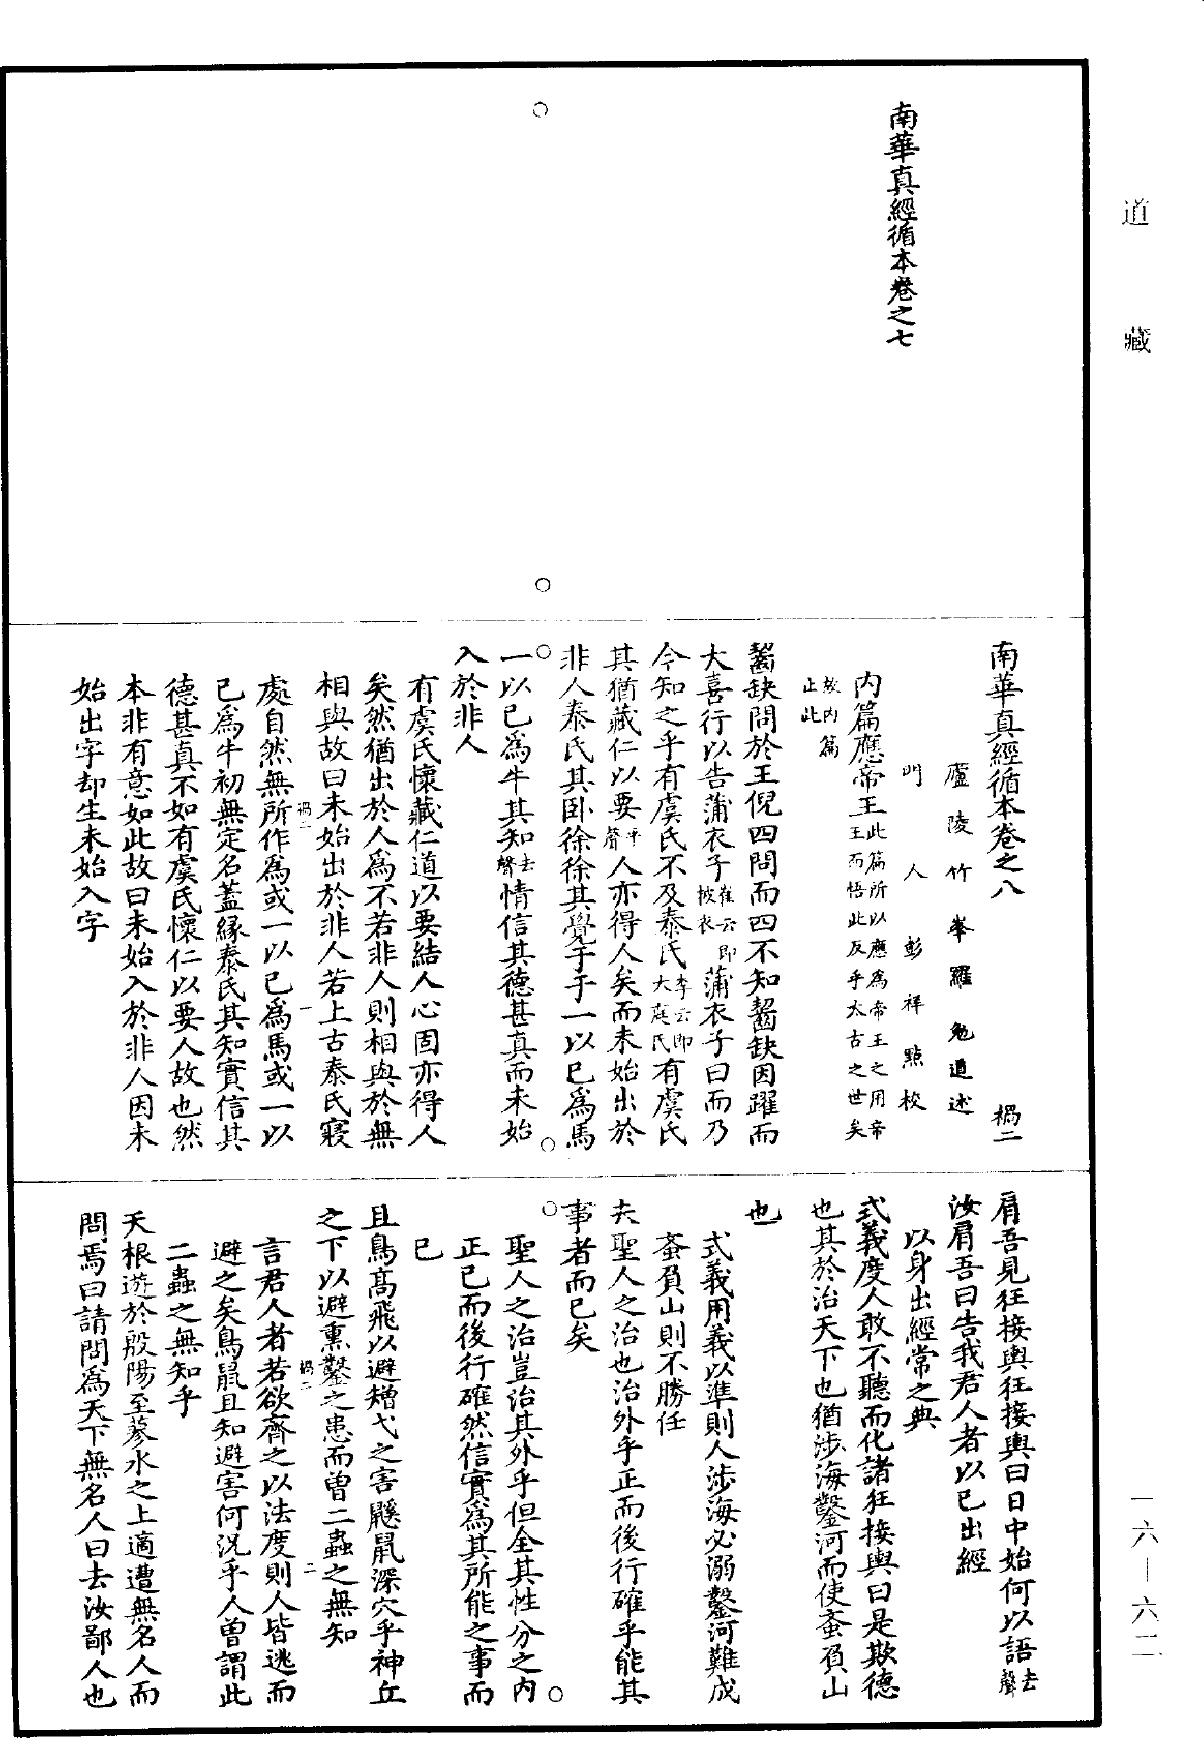 道藏
南華真經循本卷之七
南華真經循本卷之八 禍二
廬陵竹峯羅勉道述
門人彭祥點校
內篇應帝王此篇所以應為帝王之用帝王而悟此反乎太古之世矣
故內篇止此
齧缺問於王倪四問而四不知齧缺因躍而
大喜行以告蒲衣子崔云即被衣蒲衣子曰而乃
今知之乎有虞氏不及泰氏李云即大庭氏有虞氏
其猶藏仁以要平聲人亦得人矣而未始出於
非人泰氏其卧徐徐其覺于于一以己為馬
一以己為牛其知去聲情信其德甚真而未始
入於非人
有虞氏懷藏仁道以要結人心固亦得人
矣然猶出於人為不若非人則相與於無
相與故曰未始出於非人若上古泰氏寢
處自然無所作為或一以己為馬或一以
己為牛初無定名蓋緣泰氏其知實信其
德甚真不如有虞氏懷仁以要人故也然
本非有意如此故曰未始入於非人因未
始出字却生未始入字
禍二 一
肩吾見狂接輿狂接輿曰日中始何以語去聲
汝肩吾曰告我君人者以己出經
以身出經常之典
式義度人敢不聽而化諸狂接輿曰是欺德
也其於治天下也猶涉海鑿河而使蚉負山
也
式義用義以準則人涉海必溺鑿河難成
蚉負山則不勝任
夫聖人之治也治外乎正而後行確乎能其
事者而已矣
聖人之治豈治其外乎但全其性分之內
正已而後行確然信實為其所能之事而
已
且鳥高飛以避矰弋之害鼷鼠深穴乎神丘
之下以避熏鑿之患而曾二蟲之無知
言君人者若欲齊之以法度則人皆逃而
避之矣鳥鼠且知避害何況乎人曾謂此
二蟲之無知乎
天根遊於殷陽至蓼水之上適遭無名人而
問焉曰請問為天下無名人曰去汝鄙人也
禍二 二
一六—六二